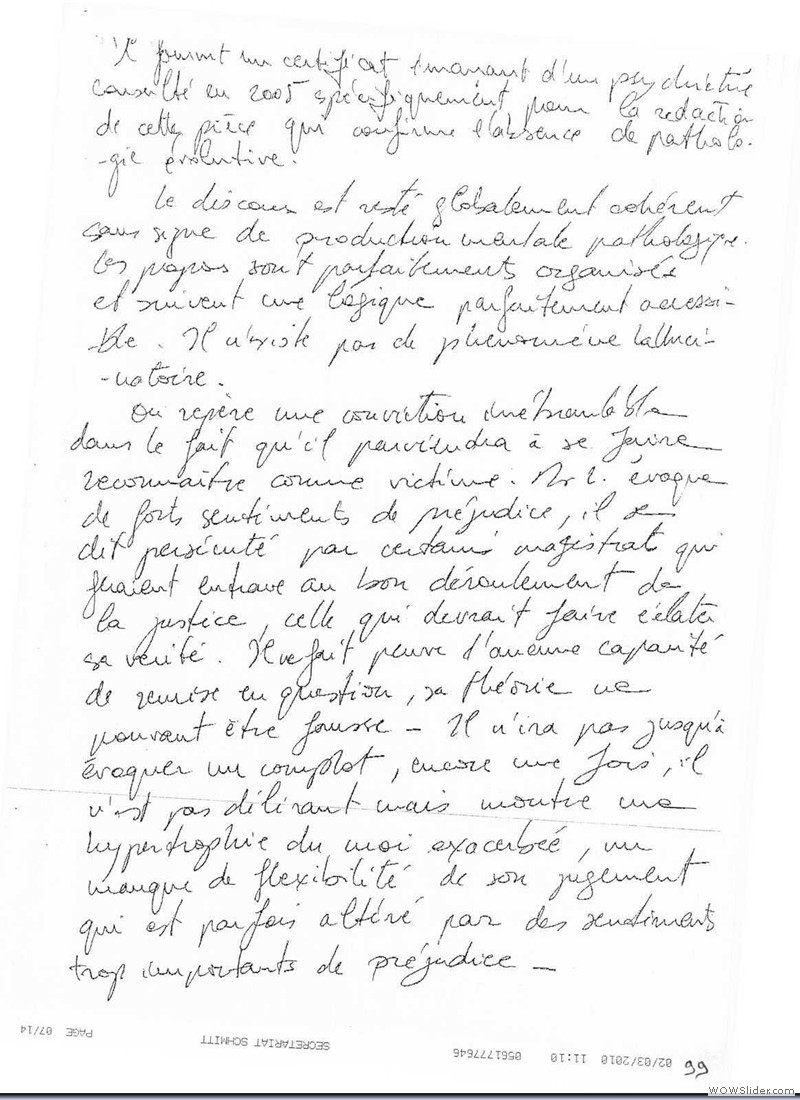 Il fournit un certificat émanant d'un psychiatre
consulté en 2005 spécifiquement pour la redaction
de cette pièce qui confirme l'absence de patholo-
-gie évolutive.
Le discours est resté globalement cohérent
sans signe de production mentale pathologique.
Les propos sont parfaitements organisés
et suivent une logique parfaitement accessi-
-ble. Il n'existe pas de phénomène halluci-
-natoire.
On repère une conviction inébranlable
dans le fait qu'il parviendra à se faire
reconnaître comme victime. Mr L. évoque
de forts sentiments de préjudice, il se
dit persécuté par certains magistrats qui
feraient entrave au bon déroulement de
la justice, celle qui devrait faire éclater
sa vérité. Il ne fait preuve d'aucune capacité
de remise en question, sa théorie ne
pouvant être fausse - Il n'ira pas jusqu'à
évoquer un complot, encore une fois, il
n'est pas délirant mais montre une
hypertrophie du moi exacerbée, un
manque de flexibilité de son jugement
qui est parfois altéré par des sentiments
trop importants de préjudice -
99
02/03/2010 11:10 0561777646 SECRETARIAT SCHMITT PAGE 07/14
WOWSlider.com